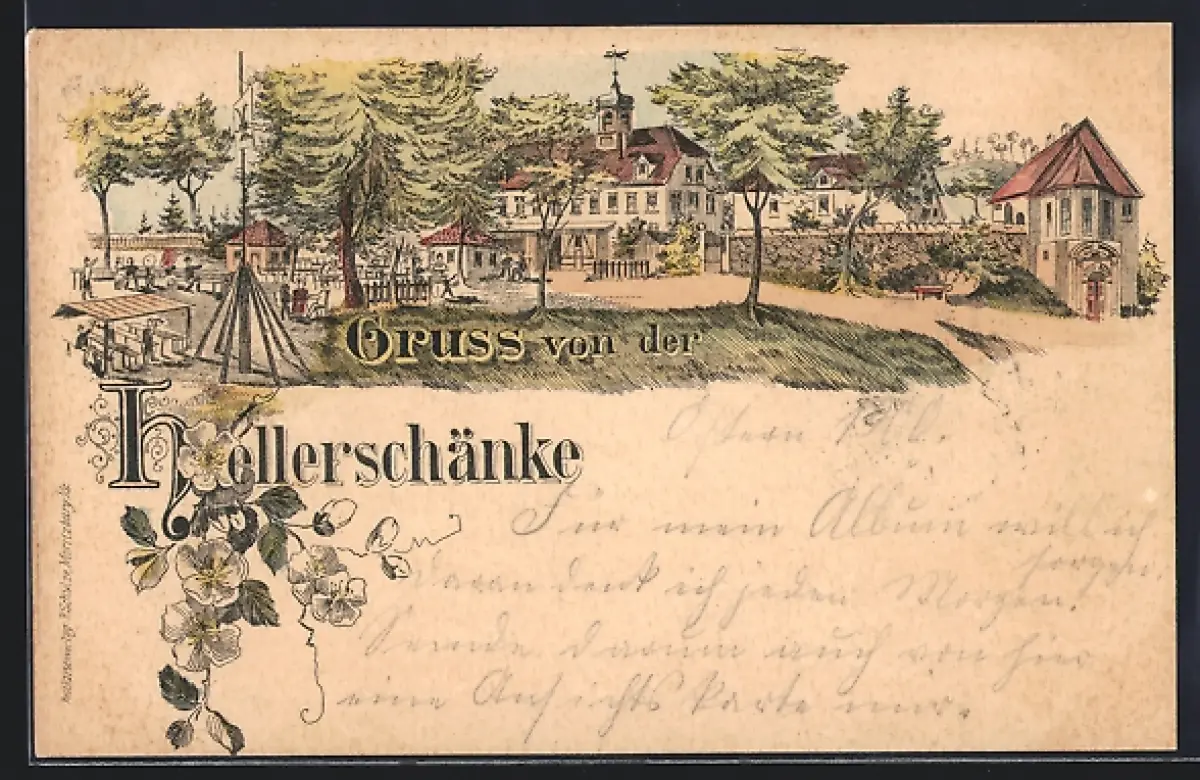 Gruss von der
Hellerschänke
Ostern
Für mein Album will ich
sorgen,
daran denk ich jeden Morgen.
Sende darum auch von hier
eine Ansichtskarte mir.